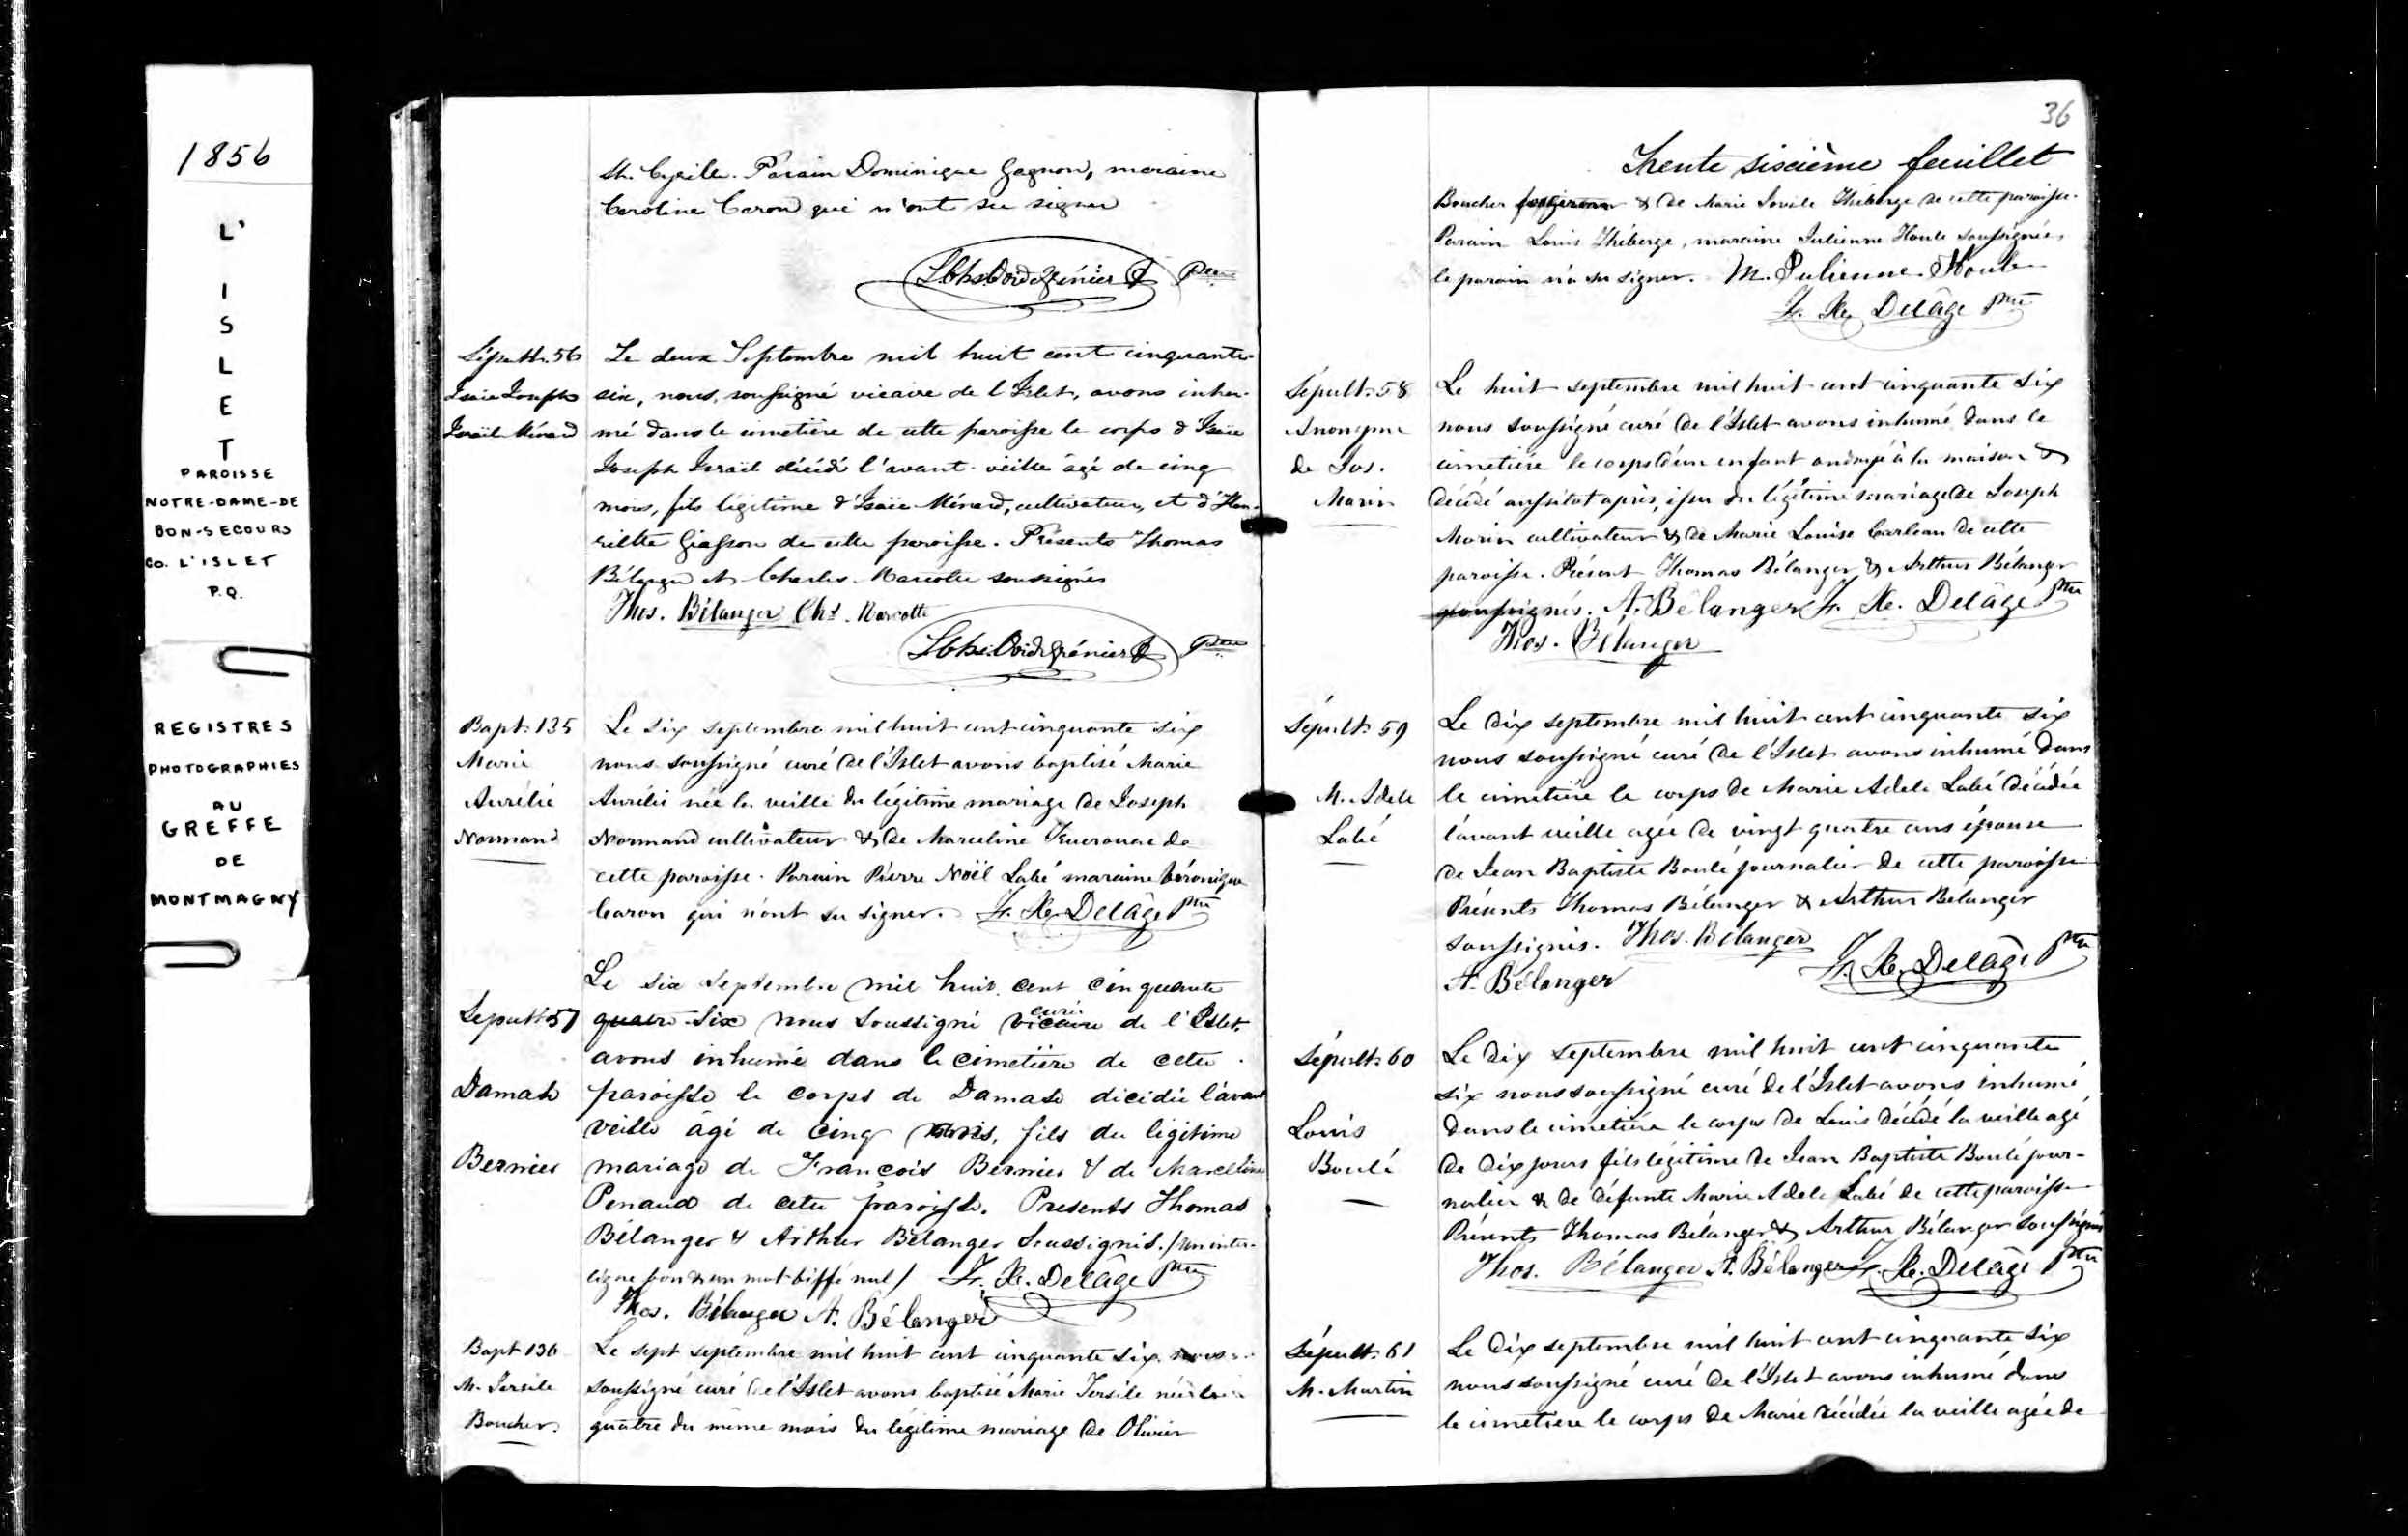 1856
L'
I
S
L
E
T
PAROISSE
NOTRE-DAME-DE
BON-SECOURS
CO. L'ISLET
P.Q.
REGISTRES
PHOTOGRAPHIES
AU
GREFFE
DE
MONTMAGNY
St. Cyrille. Parain Dominique Gagnon, maraine
Caroline Caron qui n'ont su signer
Ptre
Sépult. 56
Isaïe Joseph
Israël Ménard
Le deux Septembre mil huit cent cinquante-
six, nous, soussigné vicaire de l'Islet, avons inhu-
mé dans le cimetière de cette paroisse le corps d'Isaïe
Joseph Israël décédé l'avant-veille âgé de cinq
mois, fils légitime d'Isaïe Ménard, cultivateur, et d'Hen-
riette Giasson de cette paroisse. Présents Thomas
Bélanger et Charles Marcotte soussignés
Thos. Bélanger Chs. Marcotte
Ptre
Bapt. 135
Marie
Aurélie
Normand
Le six septembre mil huit cent cinquante six
nous soussigné curé de l'Islet avons baptisé Marie
Aurélie née la veille du légitime mariage de Joseph
Normand cultivateur & de Marceline de
cette paroisse. Parain Pierre Noël Labé maraine Véronique
Caron qui n'ont su signer. F. X. Delâge Ptre
Sépult. 57
Damase
Bernier
Le six Septembre mil huit cent cinquante
quatre six nous soussigné vicaire curé de l'Islet
avons inhumé dans le cimetière de cette
paroisse le corps de Damase décédé l'avant
veille âgé de cinq mois, fils du légitime
mariage de François Bernier & de Marceline
de cette paroisse. Presents Thomas
Bélanger & Arthur Bélanger Soussignés. / un inter-
ligne bon & un mot biffé nul / F. X. Delâge Ptre
Thos. Bélanger A. Bélanger
Bapt 136
M. Tersile
Boucher
Le sept septembre mil huit cent cinquante six nous
soussigné curé de l'Islet avons baptisé Marie Tersile née le
quatre du même mois du légitime mariage de Olivier
36
Trente sixième feuillet
Boucher & de Marie Théberge de cette paroisse.
Parain Louis Théberge, maraine Julienne Houle soussignée,
le parain n'a su signer. M. Julienne Houle
F. X. Delâge Ptre
Sépult. 58
Anonyme
de Jos.
Morin
Le huit septembre mil huit cent cinquante six
nous soussigné curé de l'Islet avons inhumé dans le
cimetière le corps d'un enfant ondoyé à la maison &
décédé aussitot après, issu du légitime mariage de Joseph
Morin cultivateur & de Marie Louise Carleau de cette
paroisse. Présent Thomas Bélanger & Arthur Bélanger
soussignés. A. Bélanger F. X. Delâge Ptre
Thos. Bélanger
Sépult. 59
M. Adele
Labé
Le dix septembre mil huit cent cinquante six
nous soussigné curé de l'Islet avons inhumé dans
le cimetière le corps de Marie Adele Labé décédée
l'avant veille agée de vingt quatre ans épouse
de Jean Baptiste Boulé journalier de cette paroisse
Présents Thomas Bélanger & Arthur Belanger
soussignés. Thos. Bélanger F. X. Delâge Ptre
A. Bélanger
Sépult. 60
Louis
Boulé
Le dix septembre mil huit cent cinquante
six nous soussigné curé de l'Islet avons inhumé
dans le cimetière le corps de Louis décédé la veille agé
de dix jours fils légitime de Jean Baptiste Boulé jour-
nalier & de défunte Marie Adele Labé de cette paroisse
Présents Thomas Bélanger & Arthur Bélanger soussignés
Thos. Bélanger A. Bélanger F. X. Delâge Ptre
Sépult. 61
M. Martin
Le dix septembre mil huit cent cinquante six
nous soussigné curé de l'Islet avons inhumé dans
le cimetiere le corps de Marie décédée la veille agée de